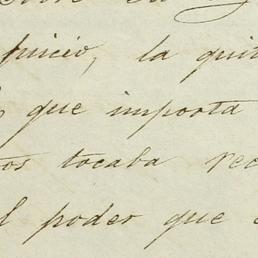 juicio, la quit
que importa
os tocaba rec
l poder que